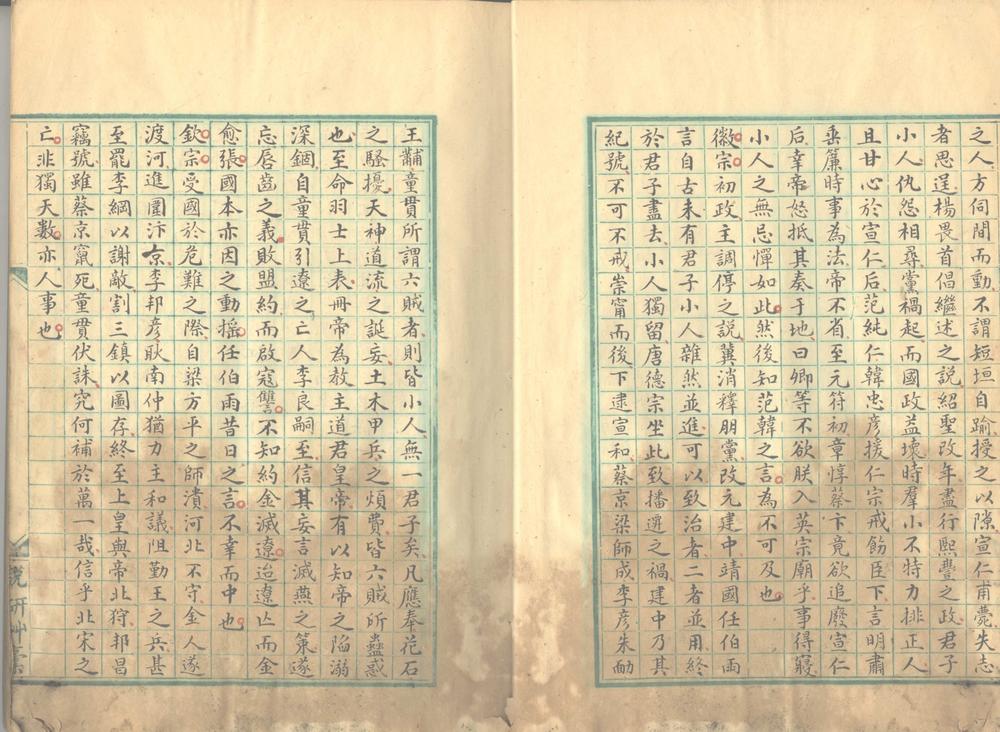 之人方伺間而動不謂短垣自踰授之以隙宣仁甫薨失志
者思逞楊畏首倡繼述之說紹聖改年盡行熙豐之政君子
小人仇怨相尋黨禍起而國政益壞時羣小不特力排正人
且甘心於宣仁后范純仁韓忠彥援仁宗戒飭臣下言明肅
垂簾時事為法帝不省至元符初章惇蔡卞竟欲追廢宣仁
后幸帝怒抵其奏于地曰卿等不欲朕入英宗廟乎事得寢
小人之無忌憚如此然後知范韓之言為不可及也
徽宗初政主調停之說冀消釋朋黨改元建中靖國任伯雨
言自古未有君子小人雜然並進可以致治者二者並用終
於君子盡去小人獨留唐德宗坐此致播遷之禍建中乃其
紀號不可不戒崇甯而後下逮宣和蔡京梁師成李彥朱勔
王黼童貫所謂六賊者則皆小人無一君子矣凡應奉花石
之騷擾天神道流之誕妄土木甲兵之煩費皆六賊所蠱惑
也至命羽士上表冊帝為教主道君皇帝有以知帝之陷溺
深錮自童貫引遼之亡人李良嗣至信其妄言滅燕之策遂
忘唇齒之義敗盟約而啟寇讐不知約金滅遼迨遼亡而金
愈張國本亦因之動搖任伯雨昔日之言不幸而中也
欽宗受國於危難之際自梁方平之師潰河北不守金人遂
渡河進圍汴京李邦彥耿南仲猶力主和議阻勤王之兵甚
至罷李綱以謝敵割三鎮以圖存終至上皇與帝北狩邦昌
竊號雖蔡京竄死童貫伏誅究何補於萬一哉信乎北宋之
亡非獨天數亦人事也